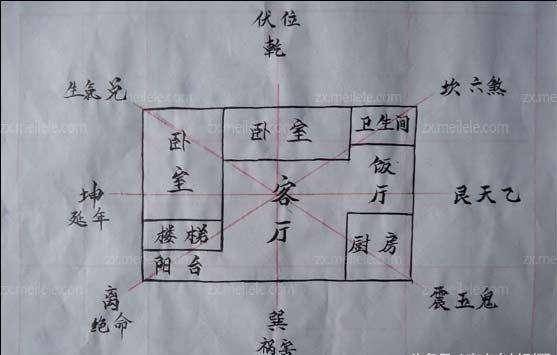 伏位
乾
生氣兑
坎六煞
zx.meilele.com
zx.meilele.com
zx.meilele.com
卧室
卧室
卫生间
饭厅
坤
延年
客厅
艮天乙
楼梯
阳台
厨房
zx.meilele.com
zx.meilele.com
zx.meilele.com
离
绝命
震五鬼
巽
祸害